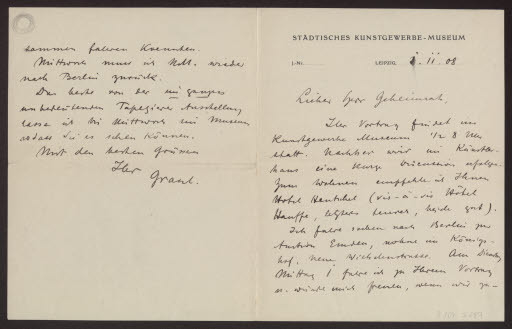 STÄDTISCHES KUNSTGEWERBE-MUSEUM
J.-Nr. LEIPZIG, 8. II. 08
Lieber Herr Geheimrat,
Ihr Vortrag findet im
Kunstgewerbe Museum 1/2 8 Uhr
statt. Nachher wird im Künstler-
haus eine kurze Discussion erfolgen.
Zum Wohnen empfehle ich Ihnen
Hotel Hentschel (vis-à-vis Hôtel
Hauffe, letzteres teurer, beide gut).
Ich fahre soeben nach Berlin zur
Auction Emden, wohne im Königs-
hof, Wilhelmstrasse. Am Dienstag
Mittag 1 fahre ich zu Ihrem Vortrag
u. würde mich freuen, wenn wir zu-
sammen fahren könnten.
Mittwoch muss ich wieder
nach Berlin zurück.
Das beste von der ganzen
unbedeutenden Tapezierer Ausstellung
lasse ich bis Mittwoch im Museum
sodass Sie es sehen können.
Mit den besten Grüssen
Ihr
Graul.